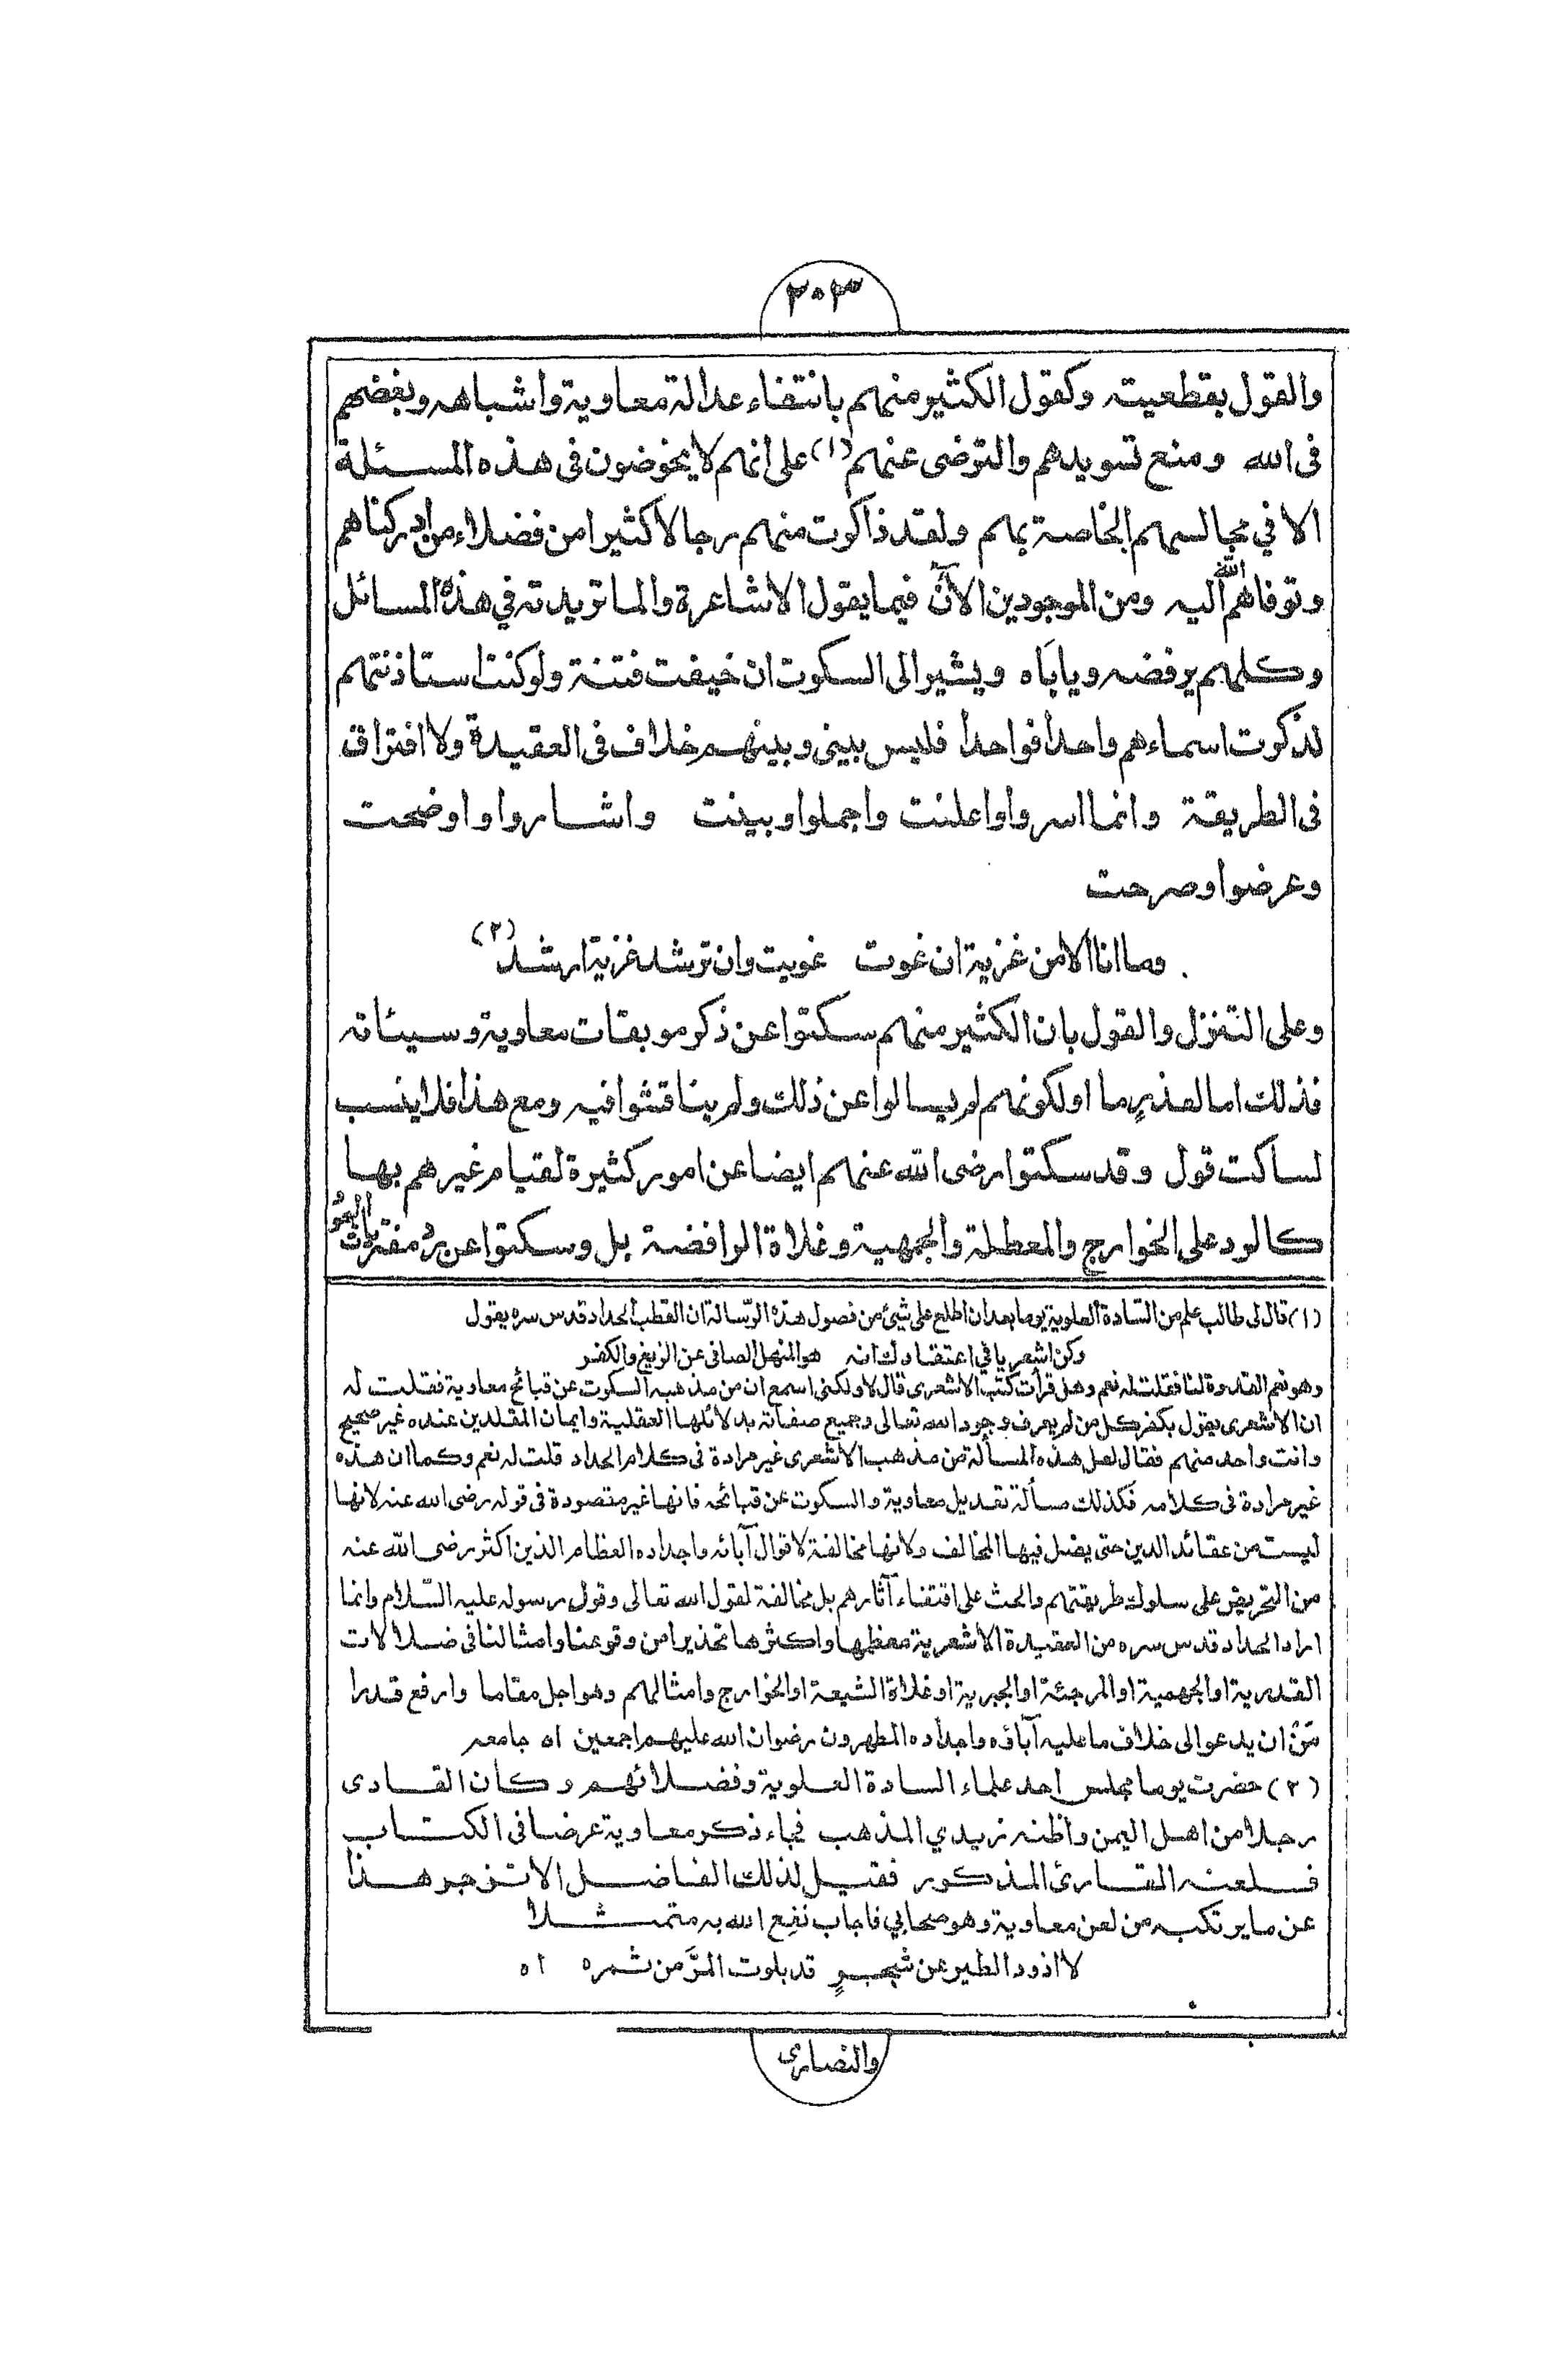 ٢٠٣
والقول بقطعيته وكقول الكثير منهم بانتفاء عدالة معاوية واشباهه وبغضهم
فى الله ومنع تسويدهم والترضى عنهم (١) على انهم لا يخوضون فى هذه المسئلة
الا في مجالسهم الخاصة بهم ولقد ذاكرت منهم رجالا كثيرا من فضلاء من ادركناهم
وتوفاهم الله اليه ومن الموجودين الآن فيما يقول الاشاعرة والماتريدية في هذه المسائل
وكلهم يرفضه ويأباه ويشير الى السكوت ان خيفت فتنة ولو كنت استاذنتهم
لذكرت اسماءهم واحدا فواحدا فليس بينى وبينهم خلاف فى العقيدة ولا افتراق
فى الطريقة وانما اسروا واعلنت واجملوا وبينت واشاروا واوضحت
وعرضوا وصرحت
وما انا الا من غزية ان غوت غويت وان ترشد غزية ارشد (٢)
وعلى التنزل والقول بان الكثير منهم سكتوا عن ذكر موبقات معاوية وسيئاته
فذلك اما لعذر ما او لكونهم لم يسالوا عن ذلك ولم يناقشوا فيه ومع هذا فلا ينسب
لساكت قول وقد سكتوا رضى الله عنهم ايضا عن امور كثيرة لقيام غيرهم بها
كالرد على الخوارج والمعطلة والجهمية وغلاة الرافضة بل وسكتوا عن رد مفتريات اليهود
(١) قال لى طالب علم من السّادة العلوية يوما بعد ان اطلع على شيئ من فصول هذه الرّسالة ان القطب الحداد قدس سره يقول
وكن اشعريا في اعتقادك انه هو المنهل الصافى عن الزيغ والكفر
وهو نعم القدوة لنا فقلت له نعم وهل قرأت كتب الاشعرى قال لا ولكنى اسمع ان من مذهبه السكوت عن قبائح معاوية فقلت له
ان الاشعرى يقول بكفر كل من لم يعرف وجود الله تعالى وجميع صفاته بدلائلها العقلية وايمان المقلدين عنده غير صحيح
وانت واحد منهم فقال لعل هذه المسألة من مذهب الأشعرى غير مرادة فى كلام الحداد قلت له نعم وكما ان هذه
غير مرادة فى كلامه فكذلك مسألة تعديل معاوية والسكوت عن قبائحه فانها غير مقصودة فى قوله رضى الله عنه لانها
ليست من عقائد الدين حتى يضلل فيها المخالف ولانها مخالفة لاقوال آبائه واجداده العظام الذين اكثر رضى الله عنه
من التحريض على سلوك طريقتهم والحث على اقتفاء آثارهم بل مخالفة لقول الله تعالى وقول رسوله عليه السّلام وانما
اراد الحداد قدس سره من العقيدة الاشعرية معظمها واكثرها تحذيرا من وقوعنا وامثالنا فى ضلالات
القدرية او الجهمية او المرجئة او الجبرية او غلاة الشيعة او الخوارج وامثالهم وهو اجل مقاما وارفع قدرا
مّن ان يدعو الى خلاف ما عليه آباؤه واجداده المطهرون رضوان الله عليهم اجمعين اه جامعه
(٢) حضرت يوما مجلس احد علماء السادة العلوية وفضلائهم وكان القارى
رجلا من اهل اليمن واظنه زيدي المذهب فجاء ذكر معاوية عرضا فى الكتاب
فلعنه القارئ المذكور فقيل لذلك الفاضل الا تزجر هذا
عن ما يرتكبه من لعن معاوية وهو صحابي فاجاب نفع الله به متمثلا
لا اذود الطير عن شجرٍ قد بلوت المرَّ من ثمره اه
والنصارى